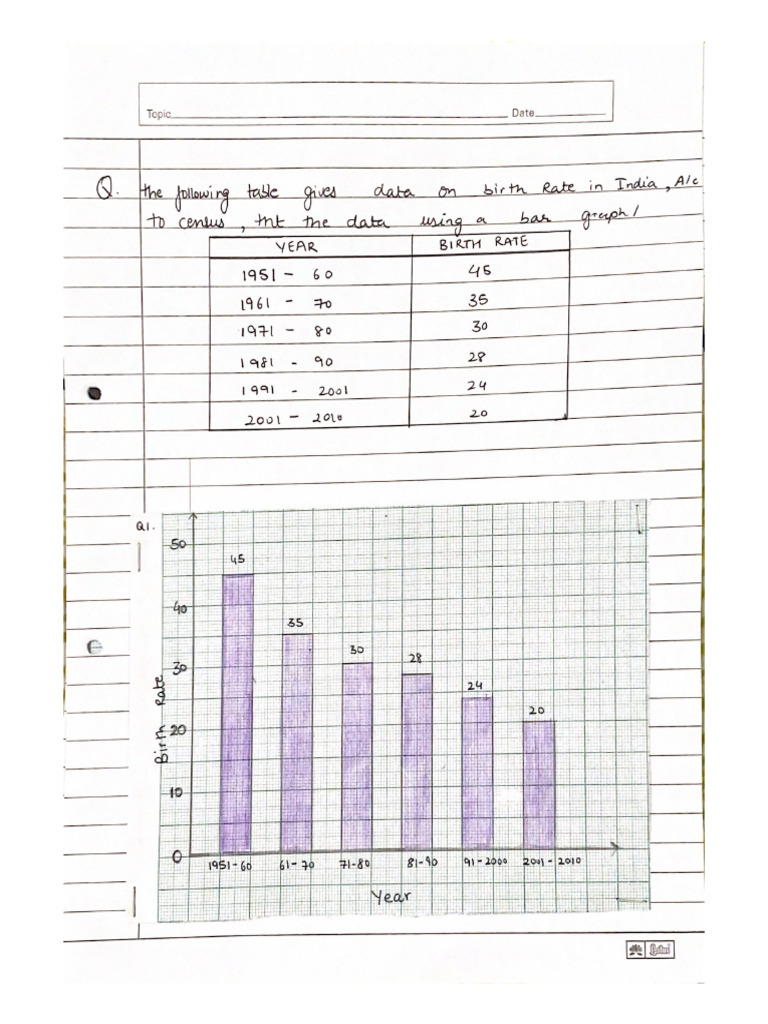 Topic Date
Q. the following table gives data on birth Rate in India, A/c
to census, tnt the data using a bar graph/
YEAR BIRTH RATE
1951 - 60 45
1961 - 70 35
1971 - 80 30
1981 - 90 28
1991 - 2001 24
2001 - 2010 20
Q1.
50
45
40
35
30
30
28
24
20
20
10
0
Birth Rate
1951-60 61-70 71-80 81-90 91-2000 2001-2010
Year